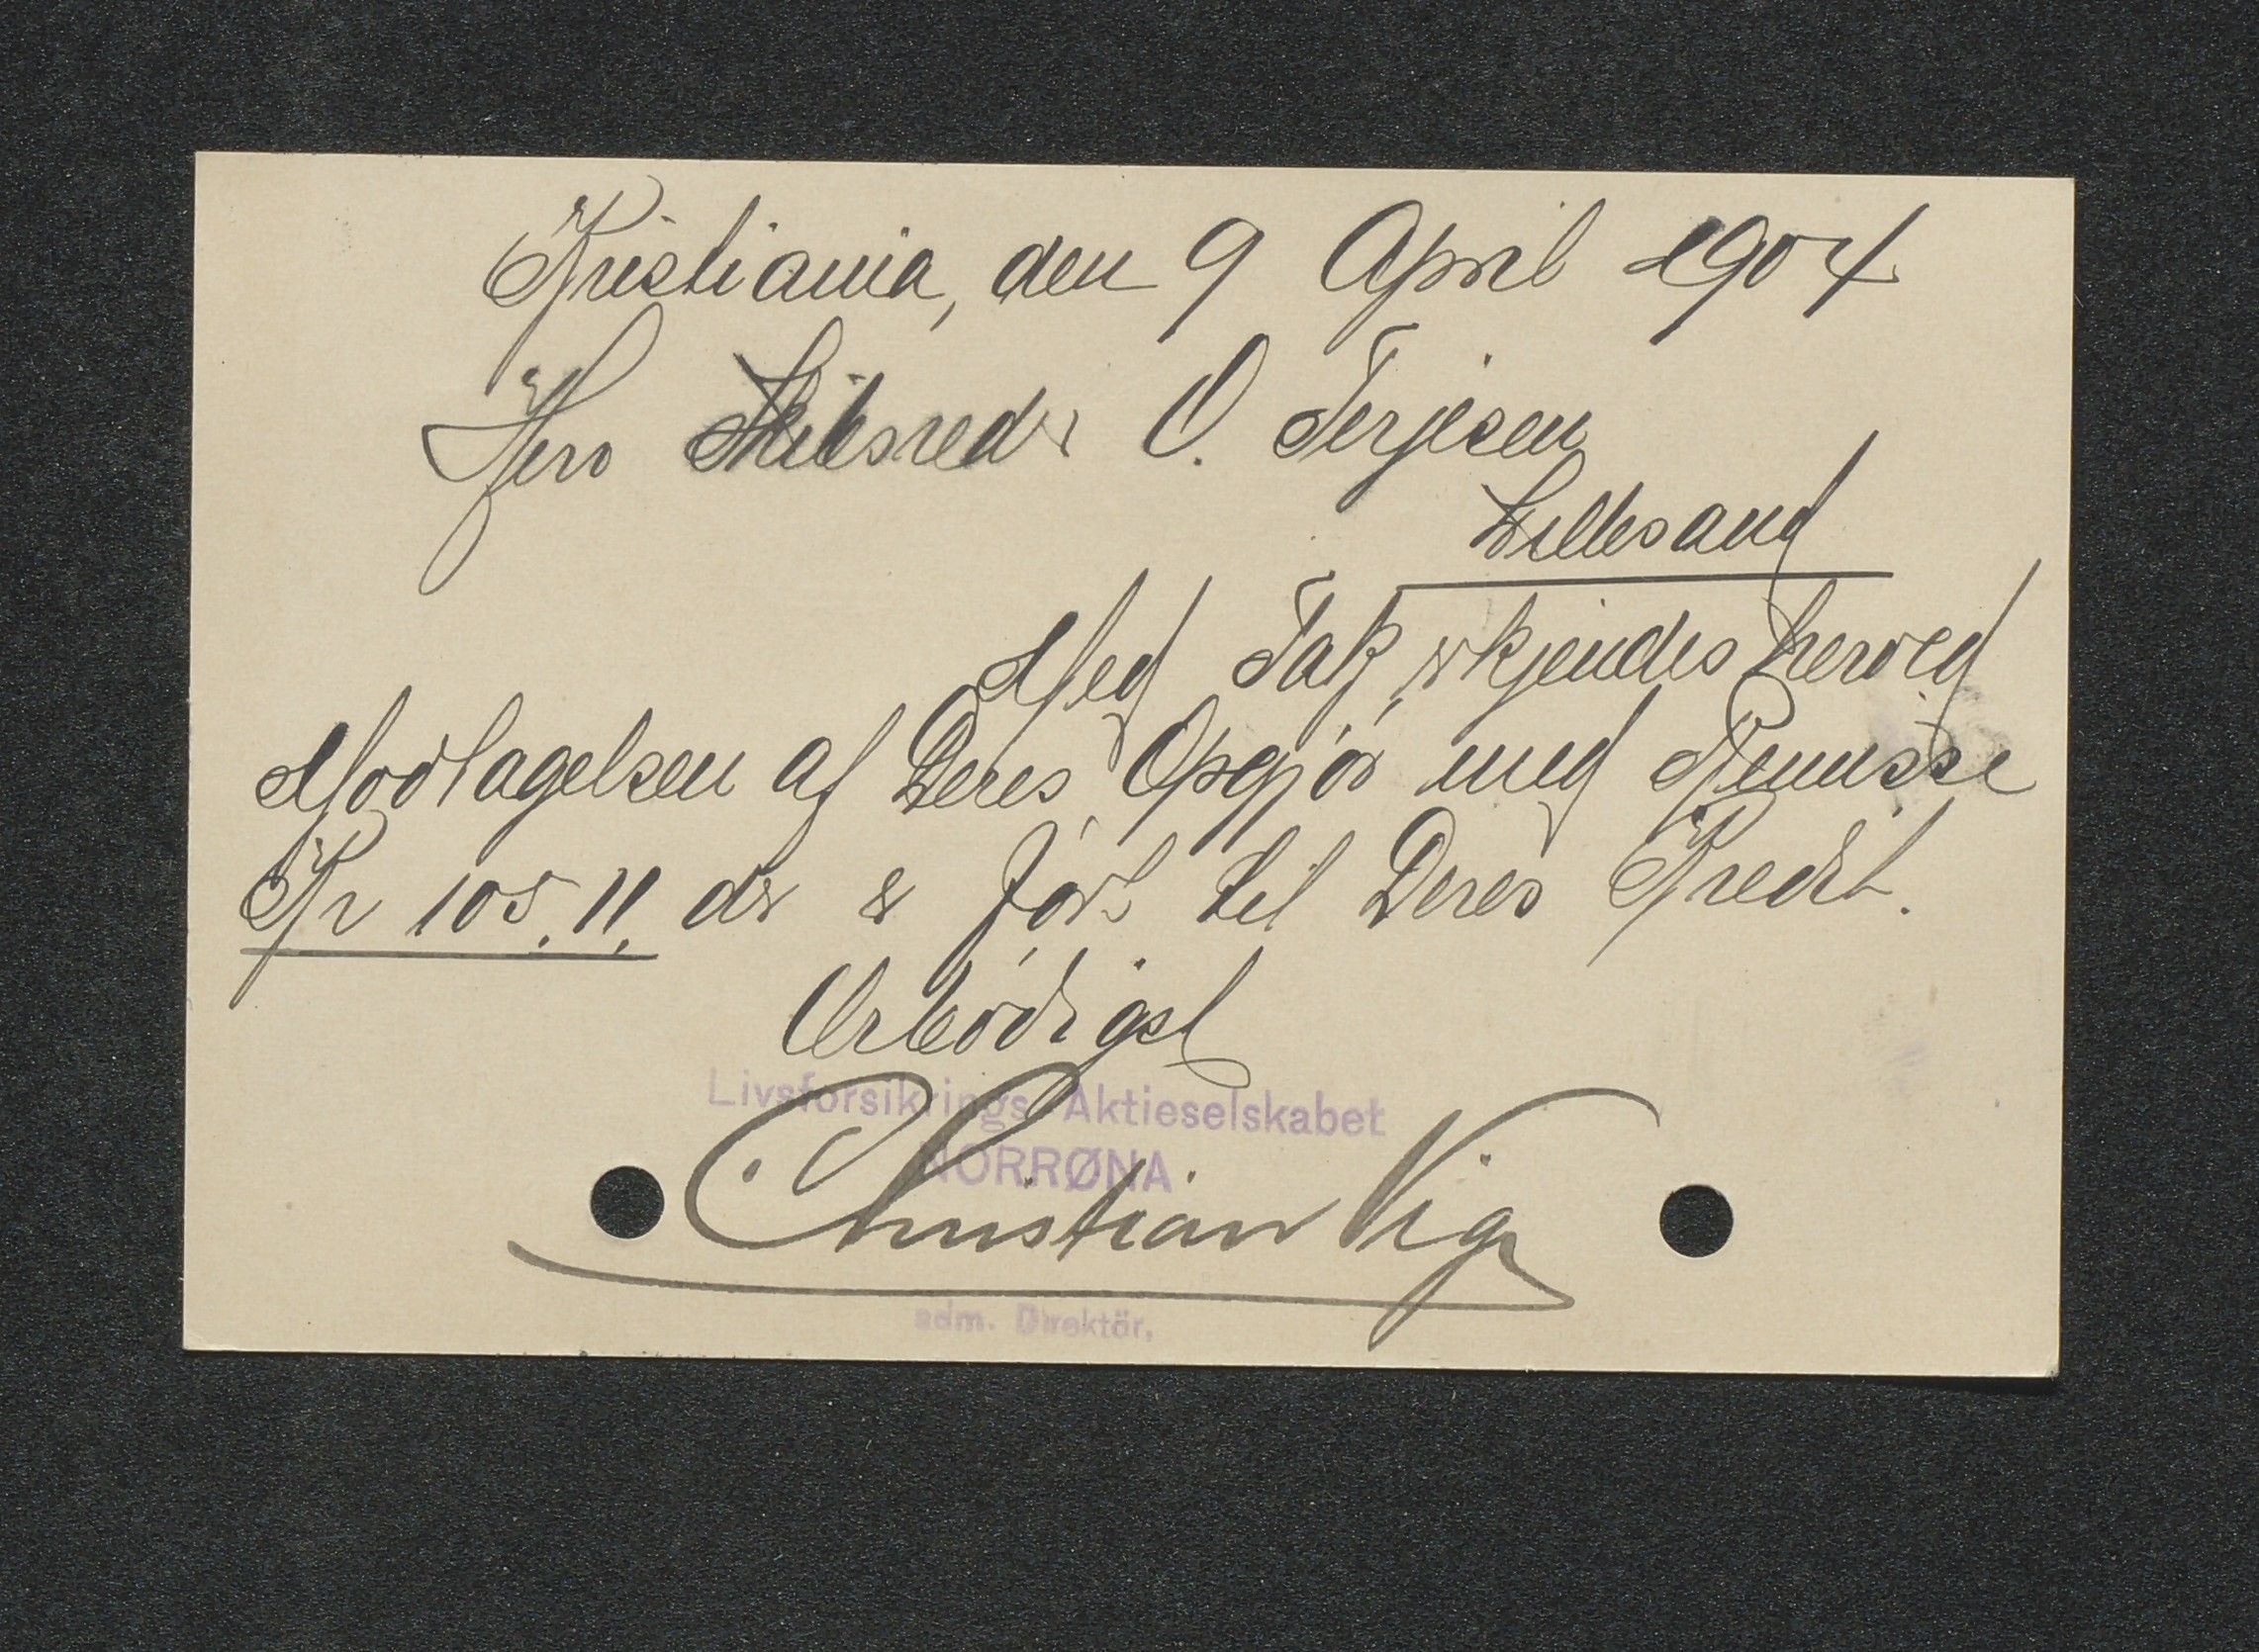 Kristiania, den 9 April 1904
Herr Skibsreder O. Terjesen
Lillesand
Med Tak erkjendes herved
Modtagelsen af Deres Opgjør med Remisse
Kr 105.11, der er ført til Deres Kredit.
Ærbødigst
Livsforsikrings-Aktieselskabet
NORRØNA
Christian Vig
adm. Direktör,